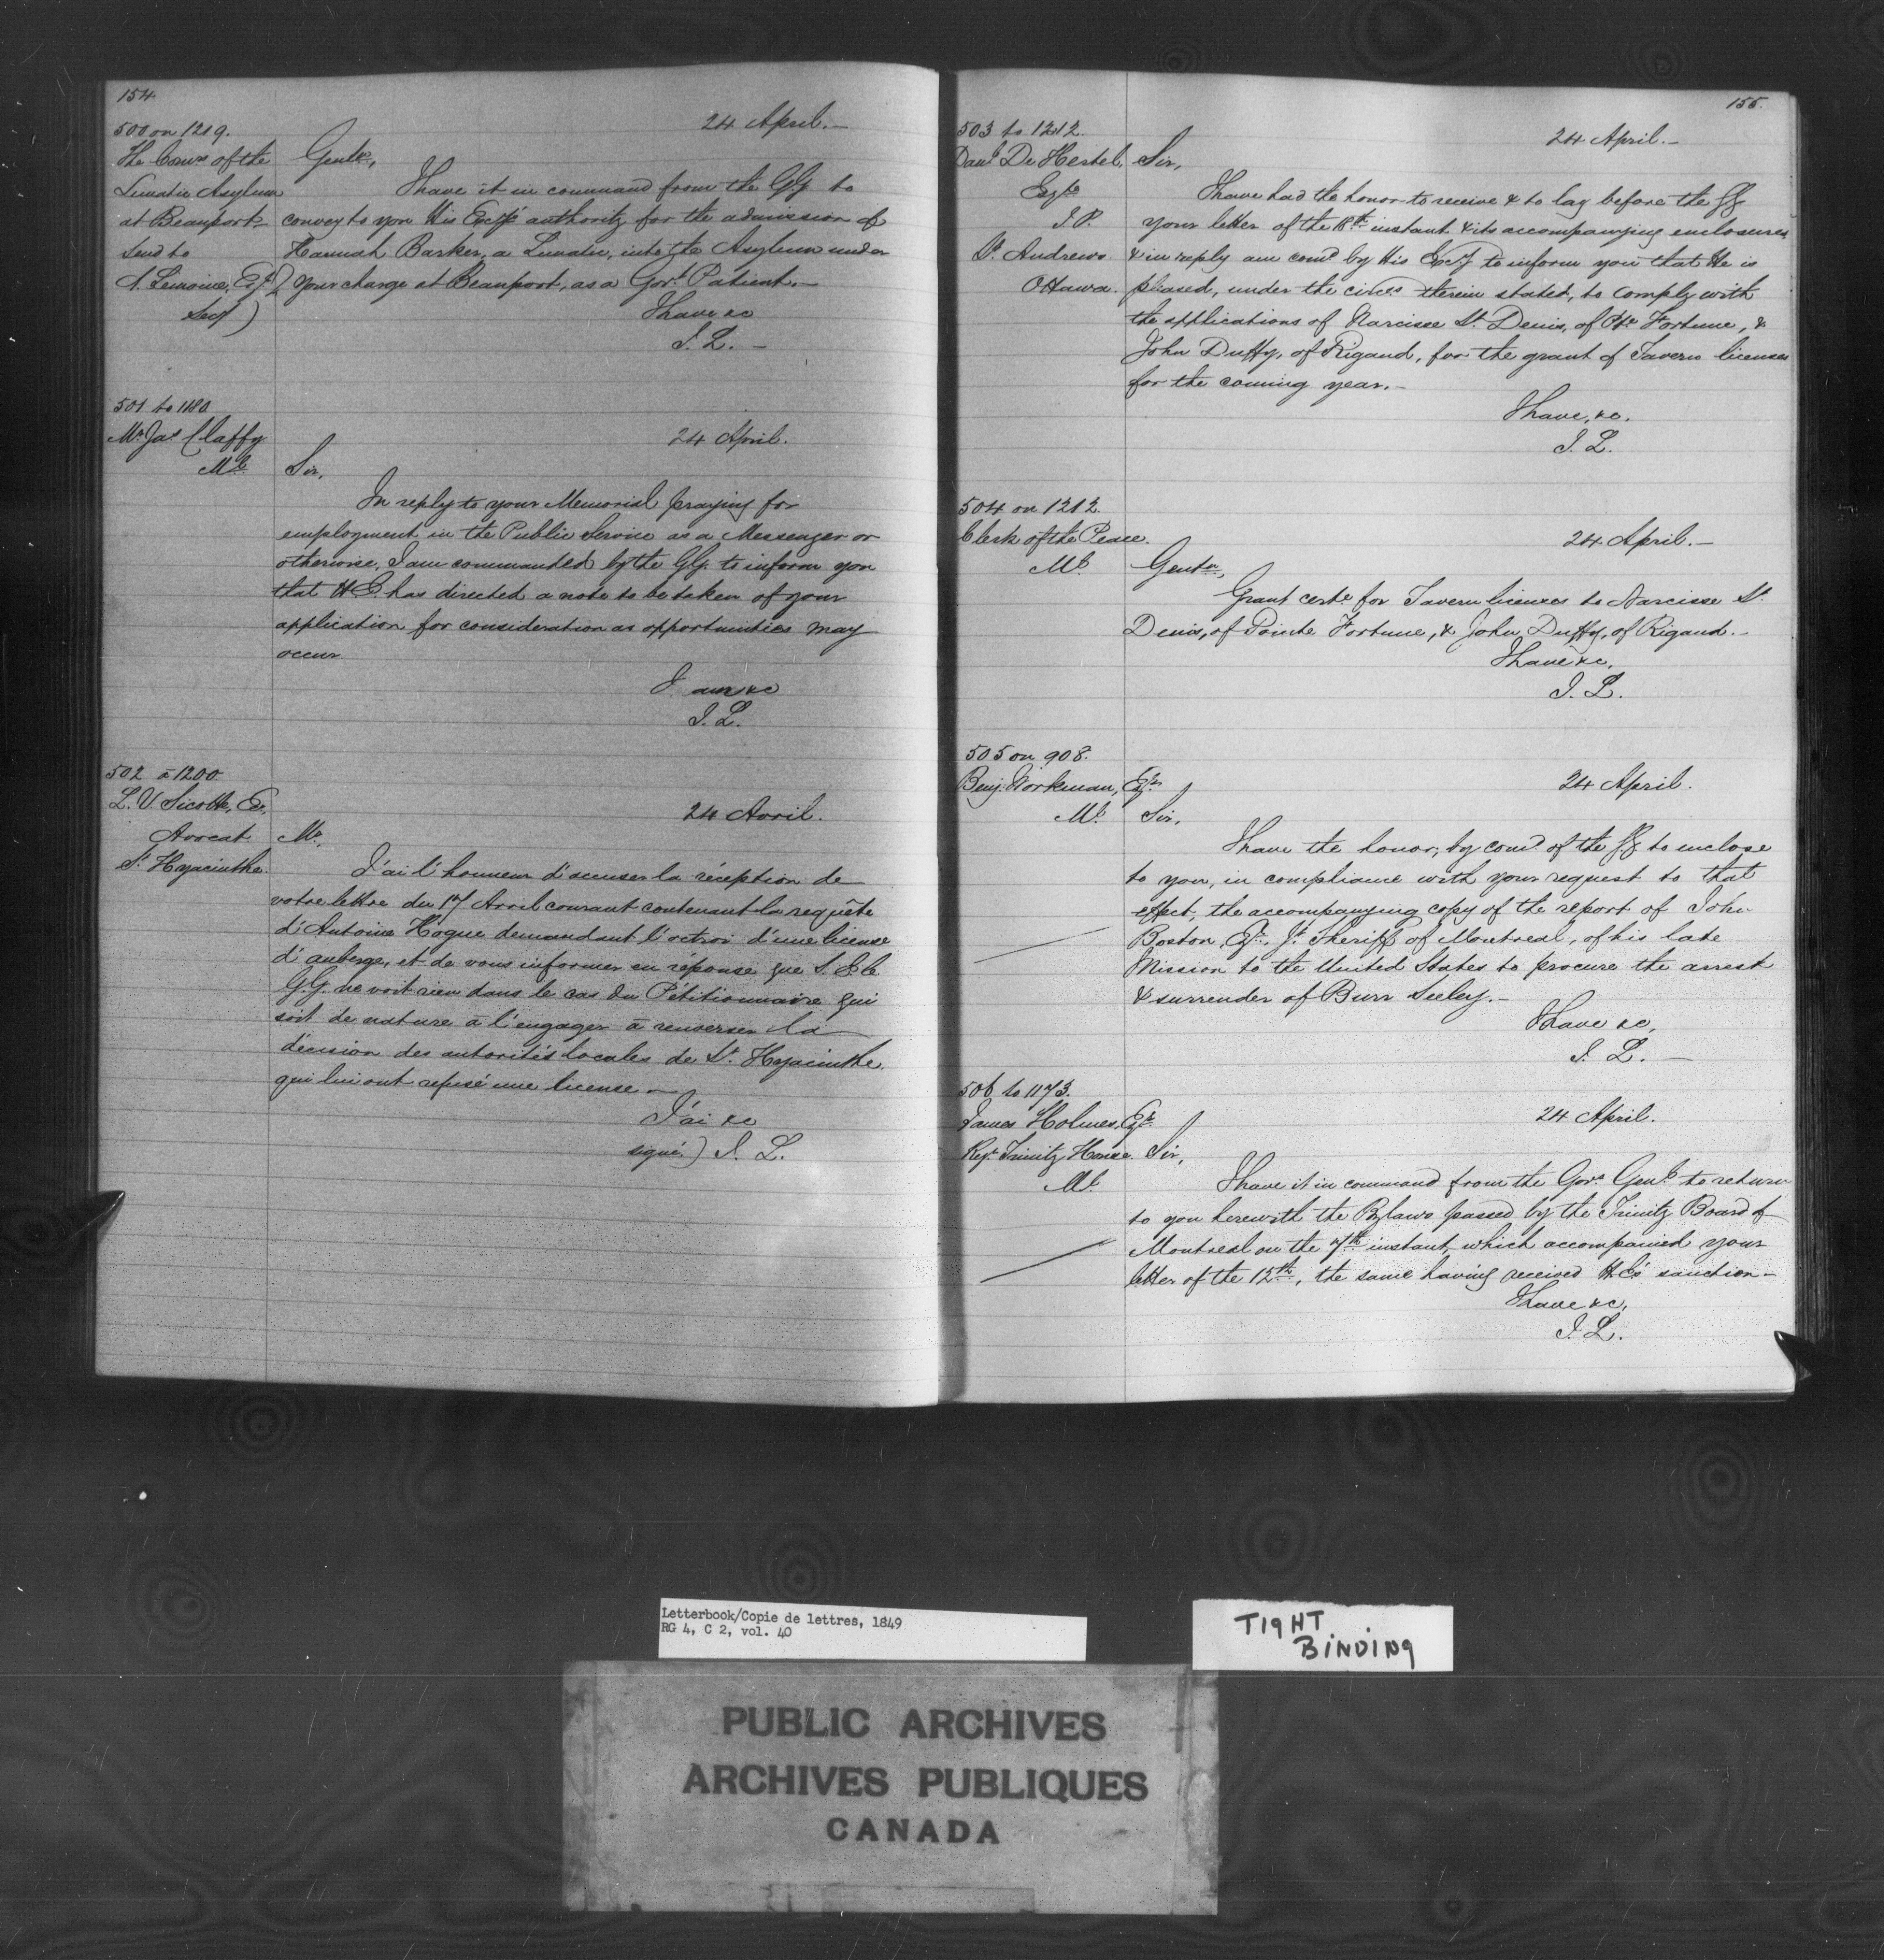 154
500 on 1219.
The Comrs of the
Lunatic Asylum
at Beauport
Send to
A. Lemoine, Esqr
Secy )
24 April.—
Gentn,
I have it in command from the GG to
convey to you His Excy's authority for the admission of
Hannah Barker, a Lunatic, into the Asylum under
your charge at Beauport, as a Govt Patient.—
I have &c
J. L. —
501 to 1180
Mr Jas Claffy
Ml
24 April.
Sir,
In reply to your Memorial praying for
employment in the Public Service as a Messenger or
otherwise, I am commanded by the GG. to inform you
that H.E. has directed a note to be taken of your
application for consideration as opportunities may
occur
I am &c
J. L.
502 à 1200
L. V. Sicotte, Er.
Avocat
St Hyacinthe
24 Avril.
Mr.
J'ai l'honneur d'accuser la réception de
votre lettre du 17 Avril courant contenant la requête
d'Antoine Hogue demandant l'octroi d'une license
d'auberge, et de vous informer en réponse que S. E. le
G.G. ne voit rien dans le cas du Pétitionnaire qui
soit de nature à l'engager à renverser la
décision des autorités locales de St. Hyacinthe
qui lui ont refusé une license —
J'ai &c
signé) J. L.
155.
503 to 1212.
Danl De Hertel
Esqre
J.P.
St. Andrews
Ottawa.
24 April.—
Sir,
I have had the honor to receive & to lay before the GG
your letter of the 18th instant & its accompanying enclosures
& in reply am comd by His Excy to inform you that He is
pleased, under the circes therein stated, to comply with
the applications of Narcisse St. Denis, of Pte Fortune, &
John Duffy, of Rigaud, for the grant of Tavern licenses
for the coming year.—
I have, &c.
J. L.
504 on 1212.
Clerk of the Peace.
Ml
24 April.—
Gentn,
Grant certe for Tavern licenses to Narcisse St.
Denis, of Pointe Fortune, & John Duffy, of Rigaud.—
I have &c,
J. L.
505 on 908.
Benj. Workman, Esqr
Ml
24 April.
Sir,
I have the honor, by comd of the GG to enclose
to you, in compliance with your request to that
effect, the accompanying copy of the report of John
Boston, Esqr, Jt Sheriff of Montreal, of his late
Mission to the United States to procure the arrest
& surrender of Burr Seeley.—
I have &c,
J. L. —
506 to 1173.
James Holmes, Esqr
Regr Trinity House
Ml
24 April.
Sir,
I have it in command from the Govr Genl to return
to you herewith the Bylaws passed by the Trinity Board of
Montreal on the 7th instant, which accompanied your
letter of the 12th, the same having received H.E's sanction—
I have &c,
J. L.
Letterbook/Copie de lettres, 1849
RG 4, C 2, vol. 40
TIGHT
BINDING
PUBLIC ARCHIVES
ARCHIVES PUBLIQUES
CANADA